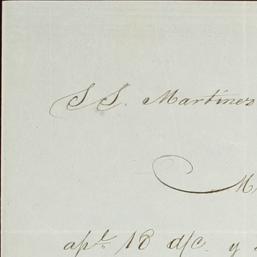 SS. Martines
M
apl. 18 d/c. y